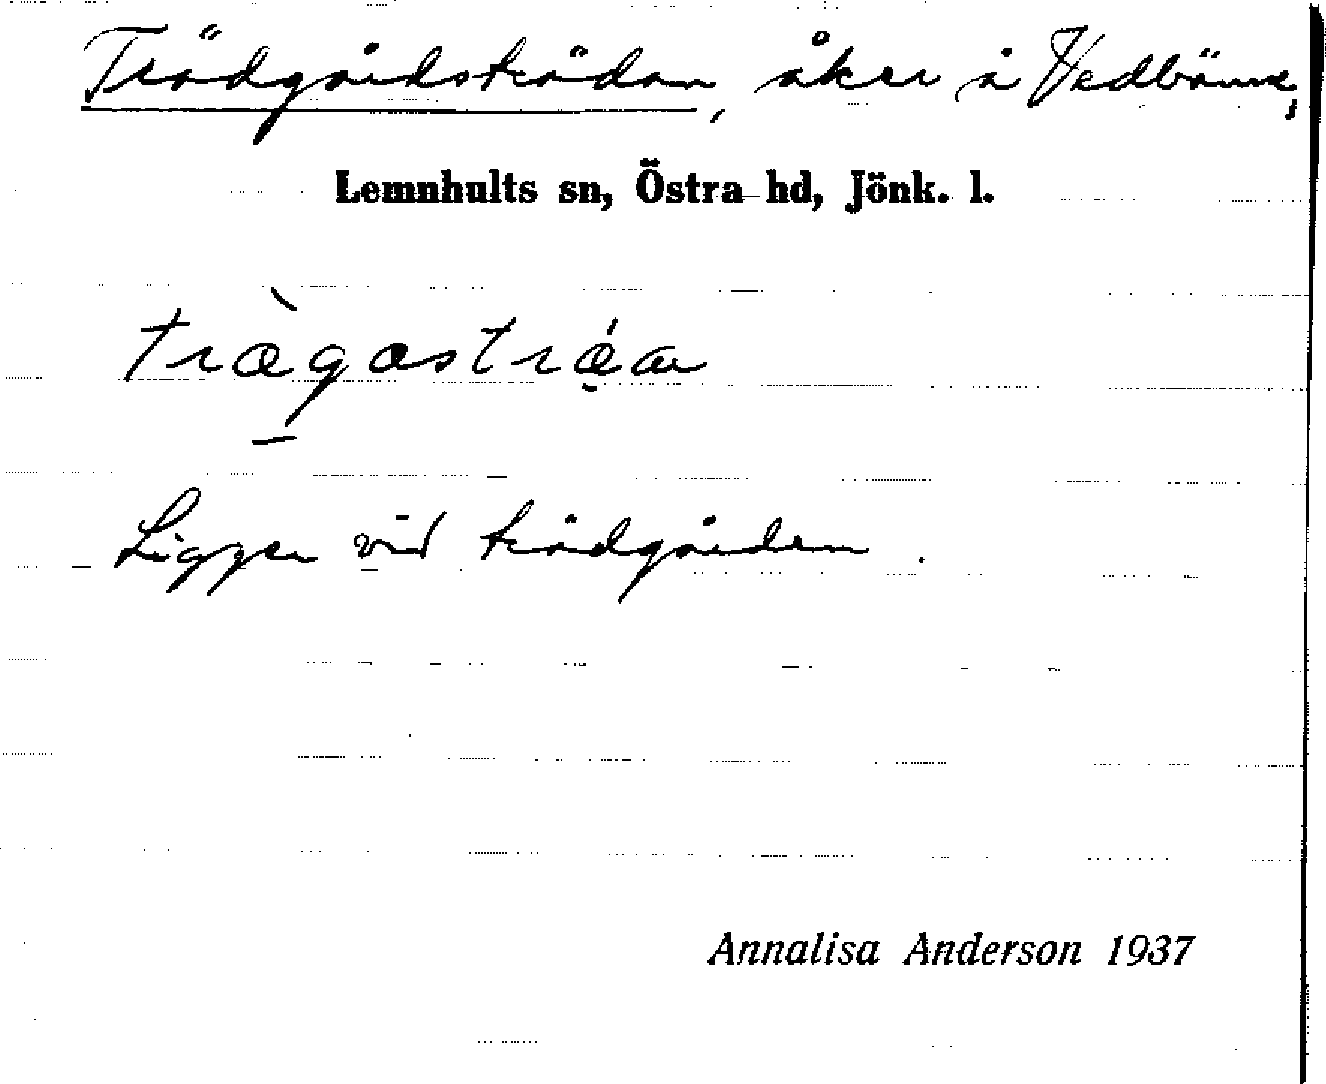 Trädgårdsträdan, åker å Vedbäme,
Lemnhults sn, Östra hd, Jönk. l.
trægastræa
Ligger vid trädgården.
Annalisa Anderson 1937